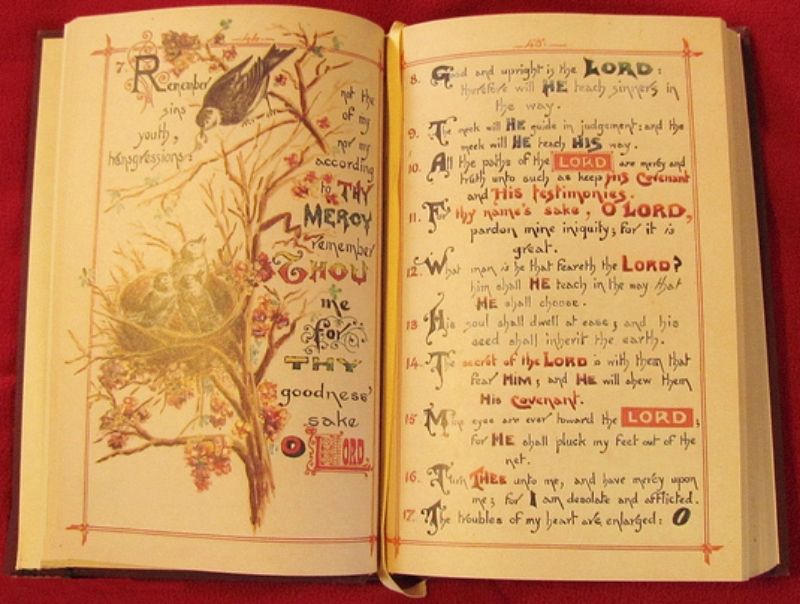 44
7. Remember not the
sins of my
youth, nor my
transgressions: according
to THY
MERCY
remember
THOU
me
for
THY
goodness'
sake
O LORD,
45.
8. Good and upright is the LORD:
therefore will HE teach sinners in
the way.
9. The meek will HE guide in judgement: and the
meek will HE teach HIS way.
10. All the paths of the LORD are mercy and
truth unto such as keep His Covenant
and His testimonies.
11. For thy name's sake, O LORD,
pardon mine iniquity; for it is
great.
12. What man is he that feareth the LORD?
him shall HE teach in the way that
HE shall choose.
13 His soul shall dwell at ease; and his
seed shall inherit the earth.
14. The secret of the LORD is with them that
fear HIM; and HE will shew them
His Covenant.
15 Mine eyes are ever toward the LORD;
for HE shall pluck my feet out of the
net.
16. Turn THEE unto me, and have mercy upon
me; for I am desolate and afflicted.
17. The troubles of my heart are enlarged: O